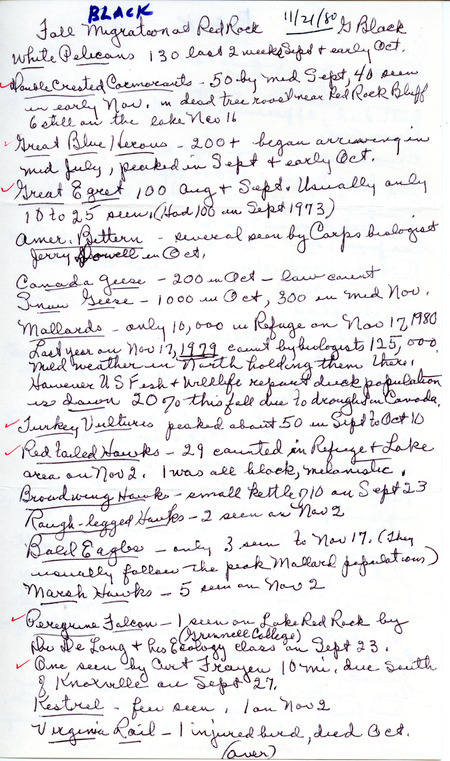 BLACK
Fall Migration at Red Rock 11/21/80 G Black
White Pelicans 130 last 2 weeks Sept & early Oct.
Double Crested Cormorants - 50 by mid Sept, 40 seen
in early Nov. in dead tree roost near Red Rock Bluff
6 still on the lake Nov 16
Great Blue Herons - 200+ began arriving in
mid July, peaked in Sept & early Oct.
Great Egret 100 Aug & Sept. Usually only
10 to 25 seen. (Had 100 in Sept 1973)
Amer. Bittern - several seen by Corps biologist
Jerry in Oct.
Canada Geese - 200 in Oct - low count
Snow Geese - 1000 in Oct, 300 in mid Nov.
Mallards - only 10,000 in Refuge on Nov 17, 1980
Last year on Nov 17, 1979 count by biologists 125,000
Mild weather in North holding them there.
However US Fish & Wildlife report duck population
is down 20% this fall due to drought in Canada.
Turkey Vultures peaked about 50 in Sept to Oct 10
Red tailed Hawks - 29 counted in Refuge & Lake
area on Nov 2. 1 was all black, melanistic.
Broadwing Hawks - small kettle 10 on Sept 23
Rough-legged Hawks - 2 seen on Nov 2
Bald Eagles - only 3 seen to Nov 17. (They
usually follow the peak Mallard populations)
Marsh Hawks - 5 seen on Nov 2
Peregrine Falcon - 1 seen on Lake Red Rock by
(Grinnell College)
Dr De Long & his Ecology class on Sept 23.
One seen by Curt 10 mi. due South
of Knoxville on Sept 27.
Kestrel - few seen, 1 on Nov 2
Virginia Rail - 1 injured bird, died Oct.
(over)